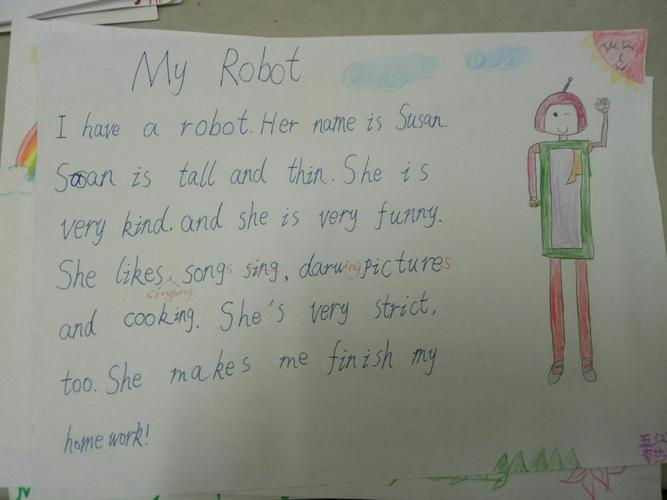 My Robot
I have a robot. Her name is Susan.
Susan is tall and thin. She is
very kind. and she is very funny.
She likes songs sing, darwing pictures
singing
and cooking. She's very strict,
too. She makes me finish my
home work!
五.(2)